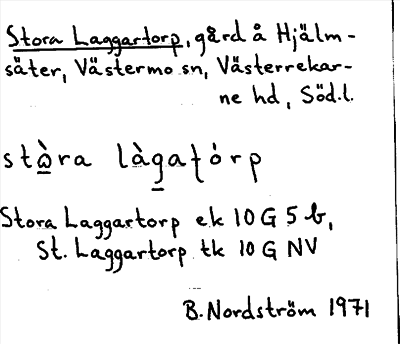 Stora Laggartorp, gård å Hjälm-
säter, Västermo sn, Västerrekar-
ne hd, Söd.l.
stὼra làgaƫȯrp
Stora Laggartorp ek 10 G 5 b,
St. Laggartorp tk 10 G NV
B. Nordström 1971